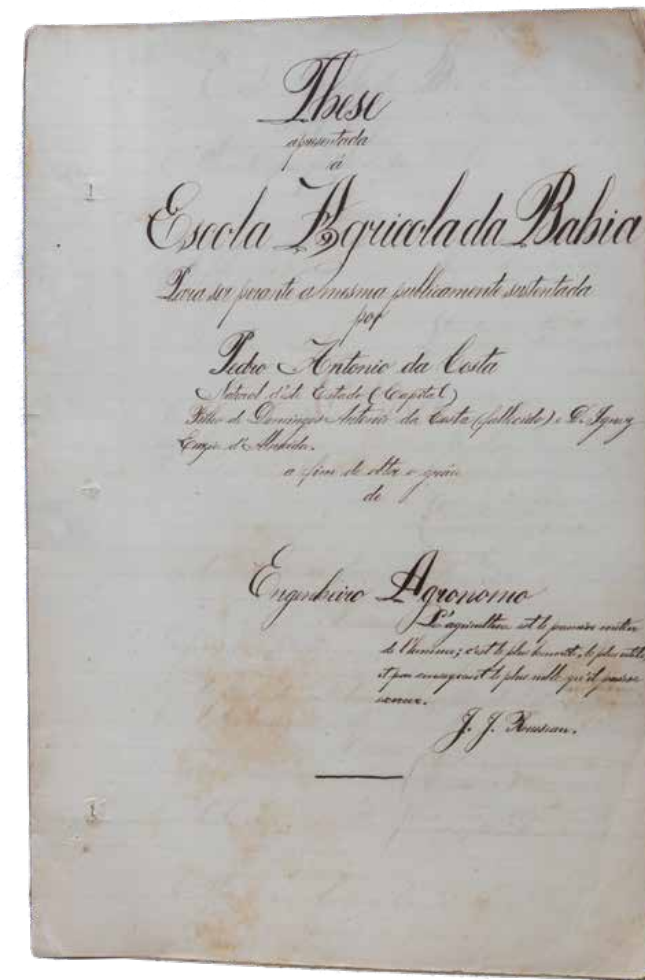 These
apresentada
á
Escola Agricola da Bahia
Para ser perante a mesma publicamente sustentada
por
Pedro Antonio da Costa
Natural d'este Estado (Capital)
Filho de Domingos Antonio da Costa (fallecido) e D. Ignez
d'Almeida.
a fim de obter o gráu
de
Engenheiro Agronomo
L'agriculture est le premier métier
de l'homme; c'est le plus honnête, le plus utile,
et par conséquent le plus noble qu'il puisse
exercer.
J. J. Rousseau.